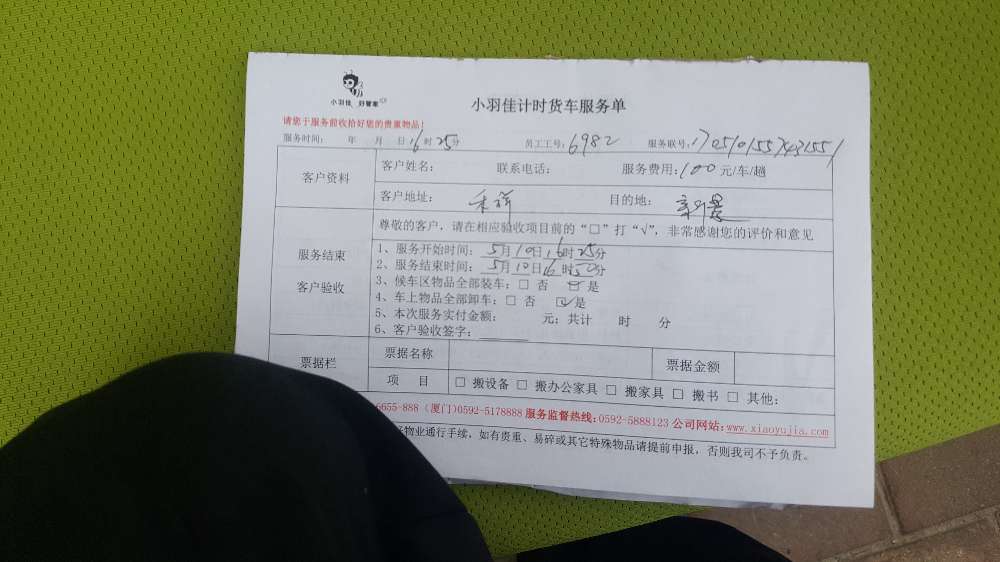 小羽佳 好管家
小羽佳计时货车服务单
请您于服务前收拾好您的贵重物品！
服务时间： 年 月 日16时25分 员工工号：6982 服务联号：
客户资料
客户姓名： 联系电话： 服务费用：100元/车/趟
客户地址：禾祥 目的地：
服务结束
客户验收
尊敬的客户，请在相应验收项目前的“□”打“√”，非常感谢您的评价和意见
1、服务开始时间：5月10日16时25分
2、服务结束时间：5月10日16时50分
3、候车区物品全部装车：□ 否 ☑是
4、车上物品全部卸车：□ 否 ☑是
5、本次服务实付金额： 元；共计 时 分
6、客户验收签字：
票据栏
票据名称 票据金额
项 目 □ 搬设备 □ 搬办公家具 □ 搬家具 □ 搬书 □ 其他：
6655-888（厦门）0592-5178888 服务监督热线：0592-5888123 公司网站：www.xiaoyujia.com
物业通行手续，如有贵重、易碎或其它特殊物品请提前申报，否则我司不予负责。